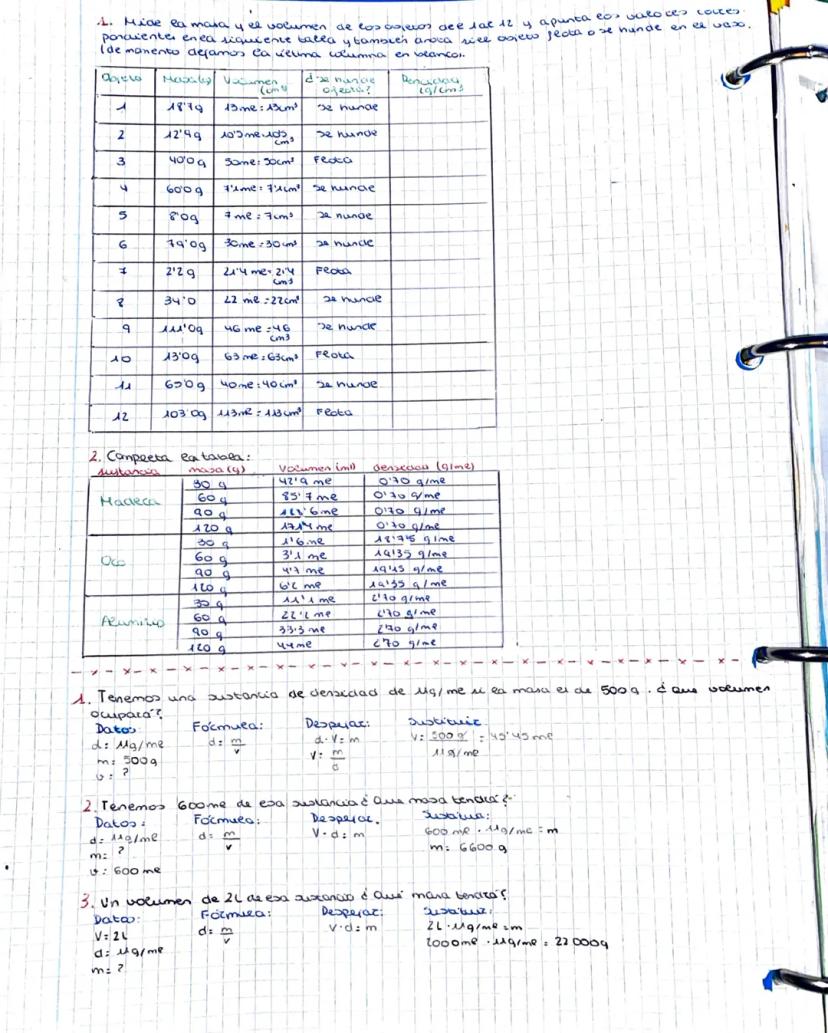 1. Mide la masa y el volumen de los objetos del 1 al 12 y apunta los valores corres-
pondientes en la siguiente tabla y también anota si el objeto flota o se hunde en el vaso.
(de momento dejamos la última columna en blanco).
Objeto Masa(g) Volumen (cm³) ¿se hunde o flota? Densidad (g/cm³
1 18'7g 13ml = 13cm³ se hunde
2 12'4g 10'5ml=10'5 cm³ se hunde
3 40'0g 50ml = 50cm³ Flota
4 60'0g 7'1ml = 7'1cm³ se hunde
5 8'0g 7ml = 7cm³ se hunde
6 79'0g 30ml = 30cm³ se hunde
7 2'2g 21'4ml = 21'4 cm³ Flota
8 34'0 22ml = 22cm³ se hunde
9 111'0g 46ml = 46 cm³ se hunde
10 13'0g 63ml = 63cm³ Flota
11 40ml = 40cm³ se hunde
12 103'0g 113ml = 113cm³ Flota
2. Completa la tabla:
sustancia masa (g) volumen (ml) densidad (g/ml)
Madera 30 g 42'9 ml 0'70 g/ml
60 g 85'7 ml 0'70 g/ml
90 g 0'70 g/ml
120 g 0'70 g/ml
Oro 30 g 1'6 ml 18'75 g/ml
60 g 3'1 ml 19'35 g/ml
90 g 4'7 ml 19'15 g/ml
120 g 6'2 ml 19'35 g/ml
Aluminio 30 g 11'1 ml 2'70 g/ml
60 g 22'2 ml 2'70 g/ml
90 g 33'3 ml 2'70 g/ml
120 g 44ml 2'70 g/ml
1. Tenemos una sustancia de densidad de 11g/ml si la masa es de 500g. ¿Que volumen
ocupará?
Datos: Fórmula: Despejar: Sustituir
d: 11g/ml d= m/v d·V=m V= 500g/11g/ml = 45'45ml
m: 500g V= m/d
v: ?
2. Tenemos 600ml de esa sustancia ¿Que masa tendrá?
Datos: Fórmula: Despejar. Sustituir:
d: 11g/ml d= m/v V·d=m 600ml · 11g/ml = m
m: ? m= 6600g
v: 600ml
3. Un volumen de 2L de esa sustancia ¿Qué masa tendrá?
Datos: Fórmula: Despejar: Sustituir:
V=2L d= m/v V·d=m 2L·11g/ml=m
d: 11g/ml 2000ml · 11g/ml = 22000g
m: ?